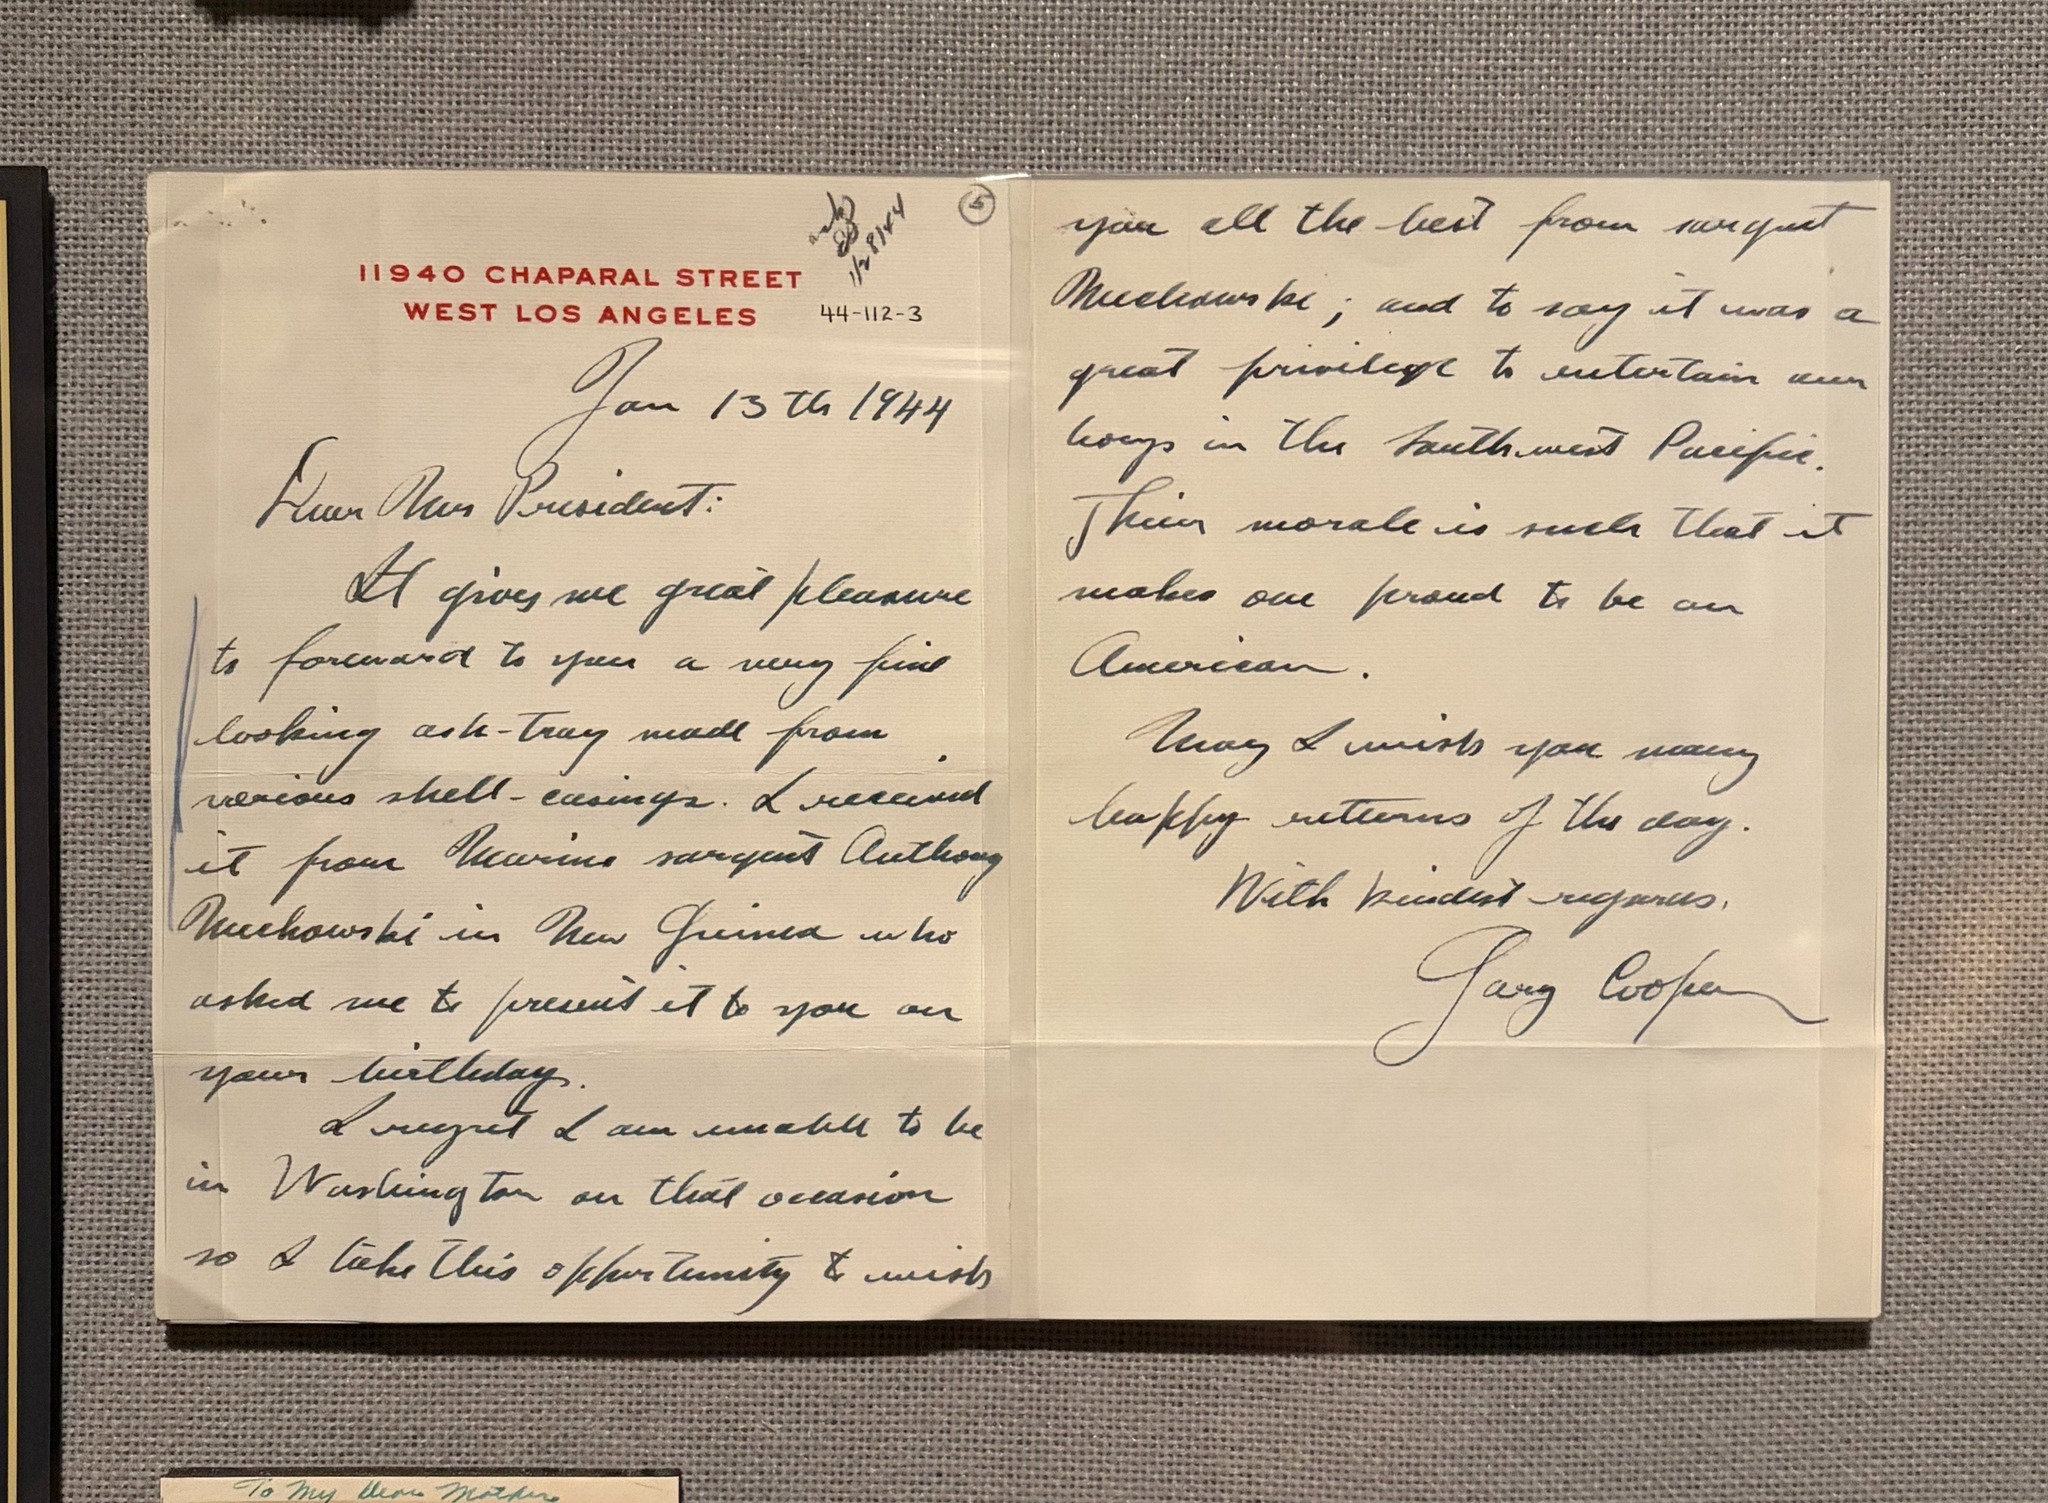 5
1/28/44
11940 CHAPARAL STREET
WEST LOS ANGELES
44-112-3
Jan 13th 1944
Dear Mr President:
It gives me great pleasure
to forward to you a very fine
looking ash-tray made from
various shell-casings. I received
it from Marine sargent Anthony
Muchowski in New Guinea who
asked me to present it to you on
your birthday.
I regret I am unable to be
in Washington on that occasion
so I take this opportunity to wish
you all the best from sargent
Muchowski; and to say it was a
great privilege to entertain our
boys in the Southwest Pacific.
Their morale is such that it
makes one proud to be an
American.
May I wish you many
happy returns of the day.
With kindest regards.
Gary Cooper
To My Dear Mother